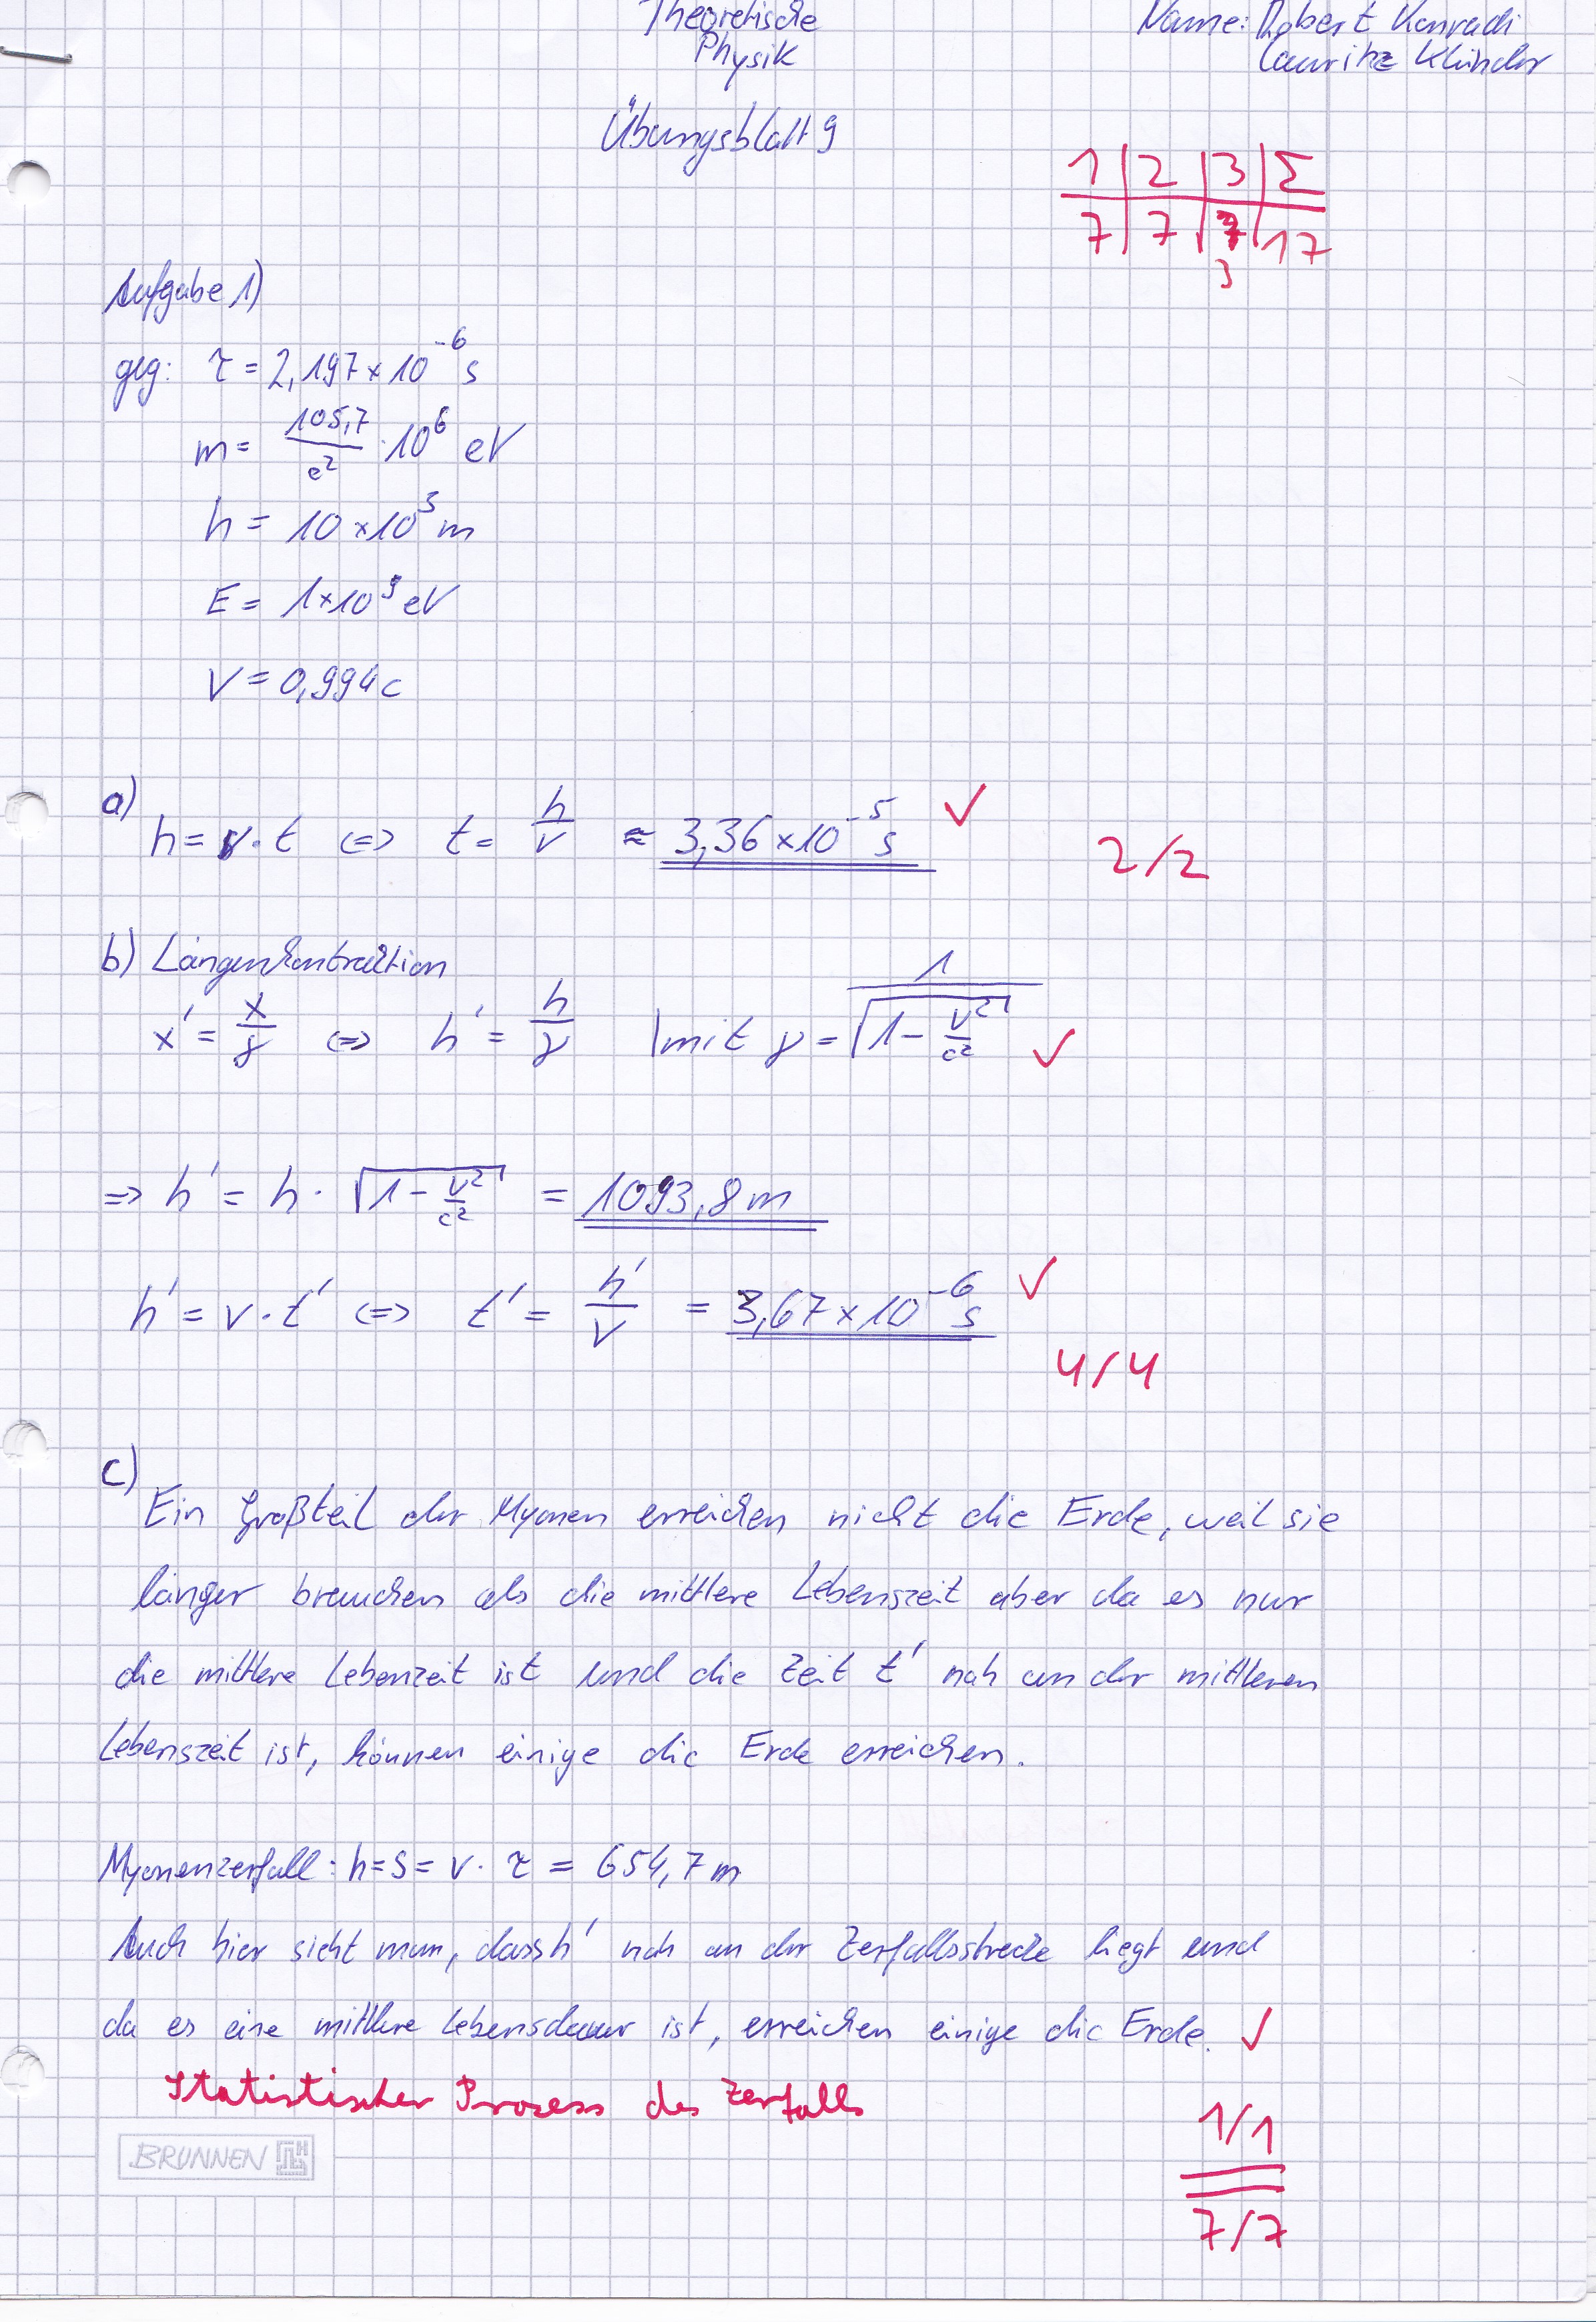 Theoretische
Physik
Name: Robert Konradi
Lauritz Klünder
Übungsblatt 9
1 | 2 | 3 | Σ
7 | 7 | 7 | 17
3
Aufgabe 1)
geg: τ = 2,197 × 10⁻⁶ s
m = 105,7/c² · 10⁶ eV
h = 10 × 10³ m
E = 1 × 10⁹ eV
V = 0,994c
a)
h = v · t <=> t = h/v ≈ 3,36 × 10⁻⁵ s ✓
2/2
b) Längenkontraktion
x' = x/γ <=> h' = h/γ | mit γ = 1/√(1 - v²/c²) ✓
=> h' = h · √(1 - v²/c²) = 1093,8 m
h' = v · t' <=> t' = h'/v = 3,67 × 10⁻⁶ s ✓
4/4
c)
Ein Großteil der Myonen erreichen nicht die Erde, weil sie
länger brauchen als die mittlere Lebenszeit aber da es nur
die mittlere Lebenzeit ist und die Zeit t' nah an der mittleren
Lebenszeit ist, können einige die Erde erreichen.
Myonenzerfall: h = s = v · τ = 654,7 m
Auch hier sieht man, dass h' nah an der Zerfallsstrecke liegt und
da es eine mittlere Lebensdauer ist, erreichen einige die Erde. ✓
Statistischer Prozess des Zerfalls
1/1
7/7
BRUNNEN